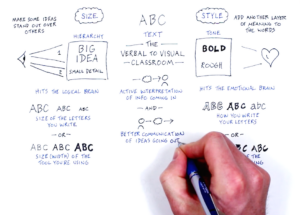 MAKE SOME IDEAS
STAND OUT OVER
OTHERS
SIZE
HIERARCHY
1
2
3
BIG
IDEA
SMALL DETAIL
HITS THE LOGICAL BRAIN
ABC ABC ABC
SIZE OF THE LETTERS
YOU WRITE
—OR—
ABC ABC ABC
SIZE (WIDTH) OF THE
TOOL YOU'RE USING
ABC
TEXT
—THE—
VERBAL TO VISUAL
—CLASSROOM—
ACTIVE INTERPRETATION
OF INFO COMING IN
—AND—
BETTER COMMUNICATION
OF IDEAS GOING OUT
STYLE
ADD ANOTHER LAYER
OF MEANING TO
THE WORDS
TONE
BOLD
ROUGH
HITS THE EMOTIONAL BRAIN
ABC ABC abc
HOW YOU WRITE
YOUR LETTERS
—OR—
ABC ABC